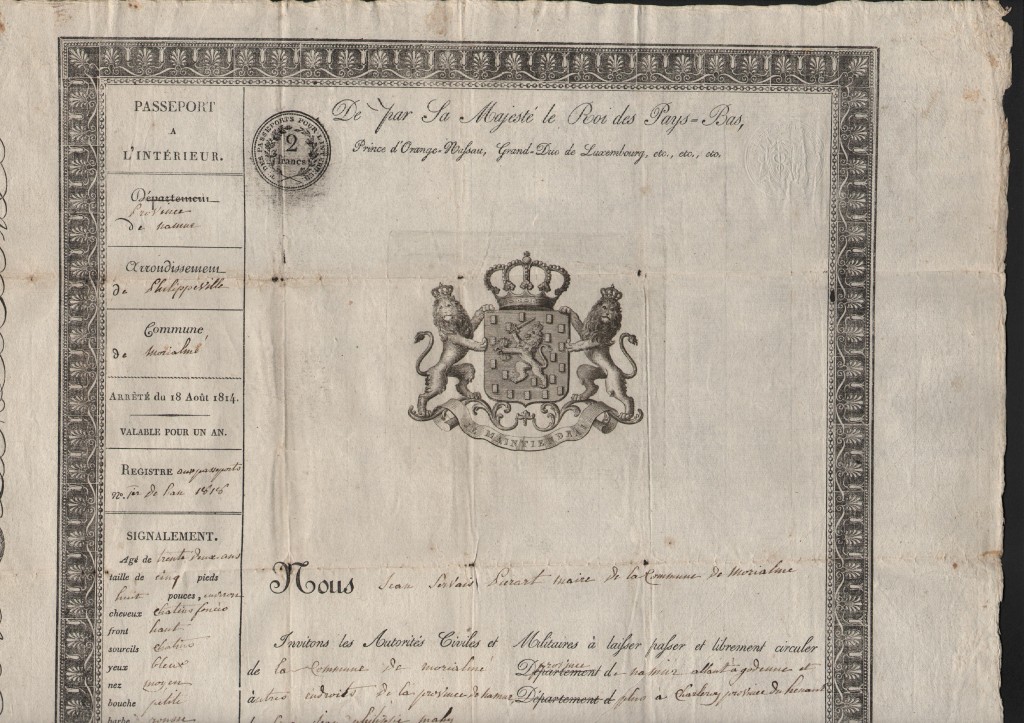 PASSEPORT
A
L'INTÉRIEUR.
Département
Province
de namur
Arrondissement
de Philippeville
Commune
de morialmé
ARRÊTÉ du 18 Août 1814.
VALABLE POUR UN AN.
REGISTRE aux passeports
N.º 1er de l'an 1818
SIGNALEMENT.
Agé de trente deux ans
taille de cinq pieds
huit pouces,
cheveux chatins foncés
front haut
sourcils chatins
yeux bleux
nez moyen
bouche petite
barbe rousse
DES PASSEPORTS POUR L'INTÉRIEUR
2
francs
De par Sa Majesté le Roi des Pays-Bas,
Prince d'Orange-Nassau, Grand-Duc de Luxembourg, etc., etc., etc.
JE MAINTIENDRAI
Nous Jean Servais maire de la Commune de morialmé
Invitons les Autorités Civiles et Militaires à laisser passer et librement circuler
de la Commune de morialmé province Département de namur allant a et
à tres endroits de la province de namur, Département d plus a Charleroy province du hainaut
philippe